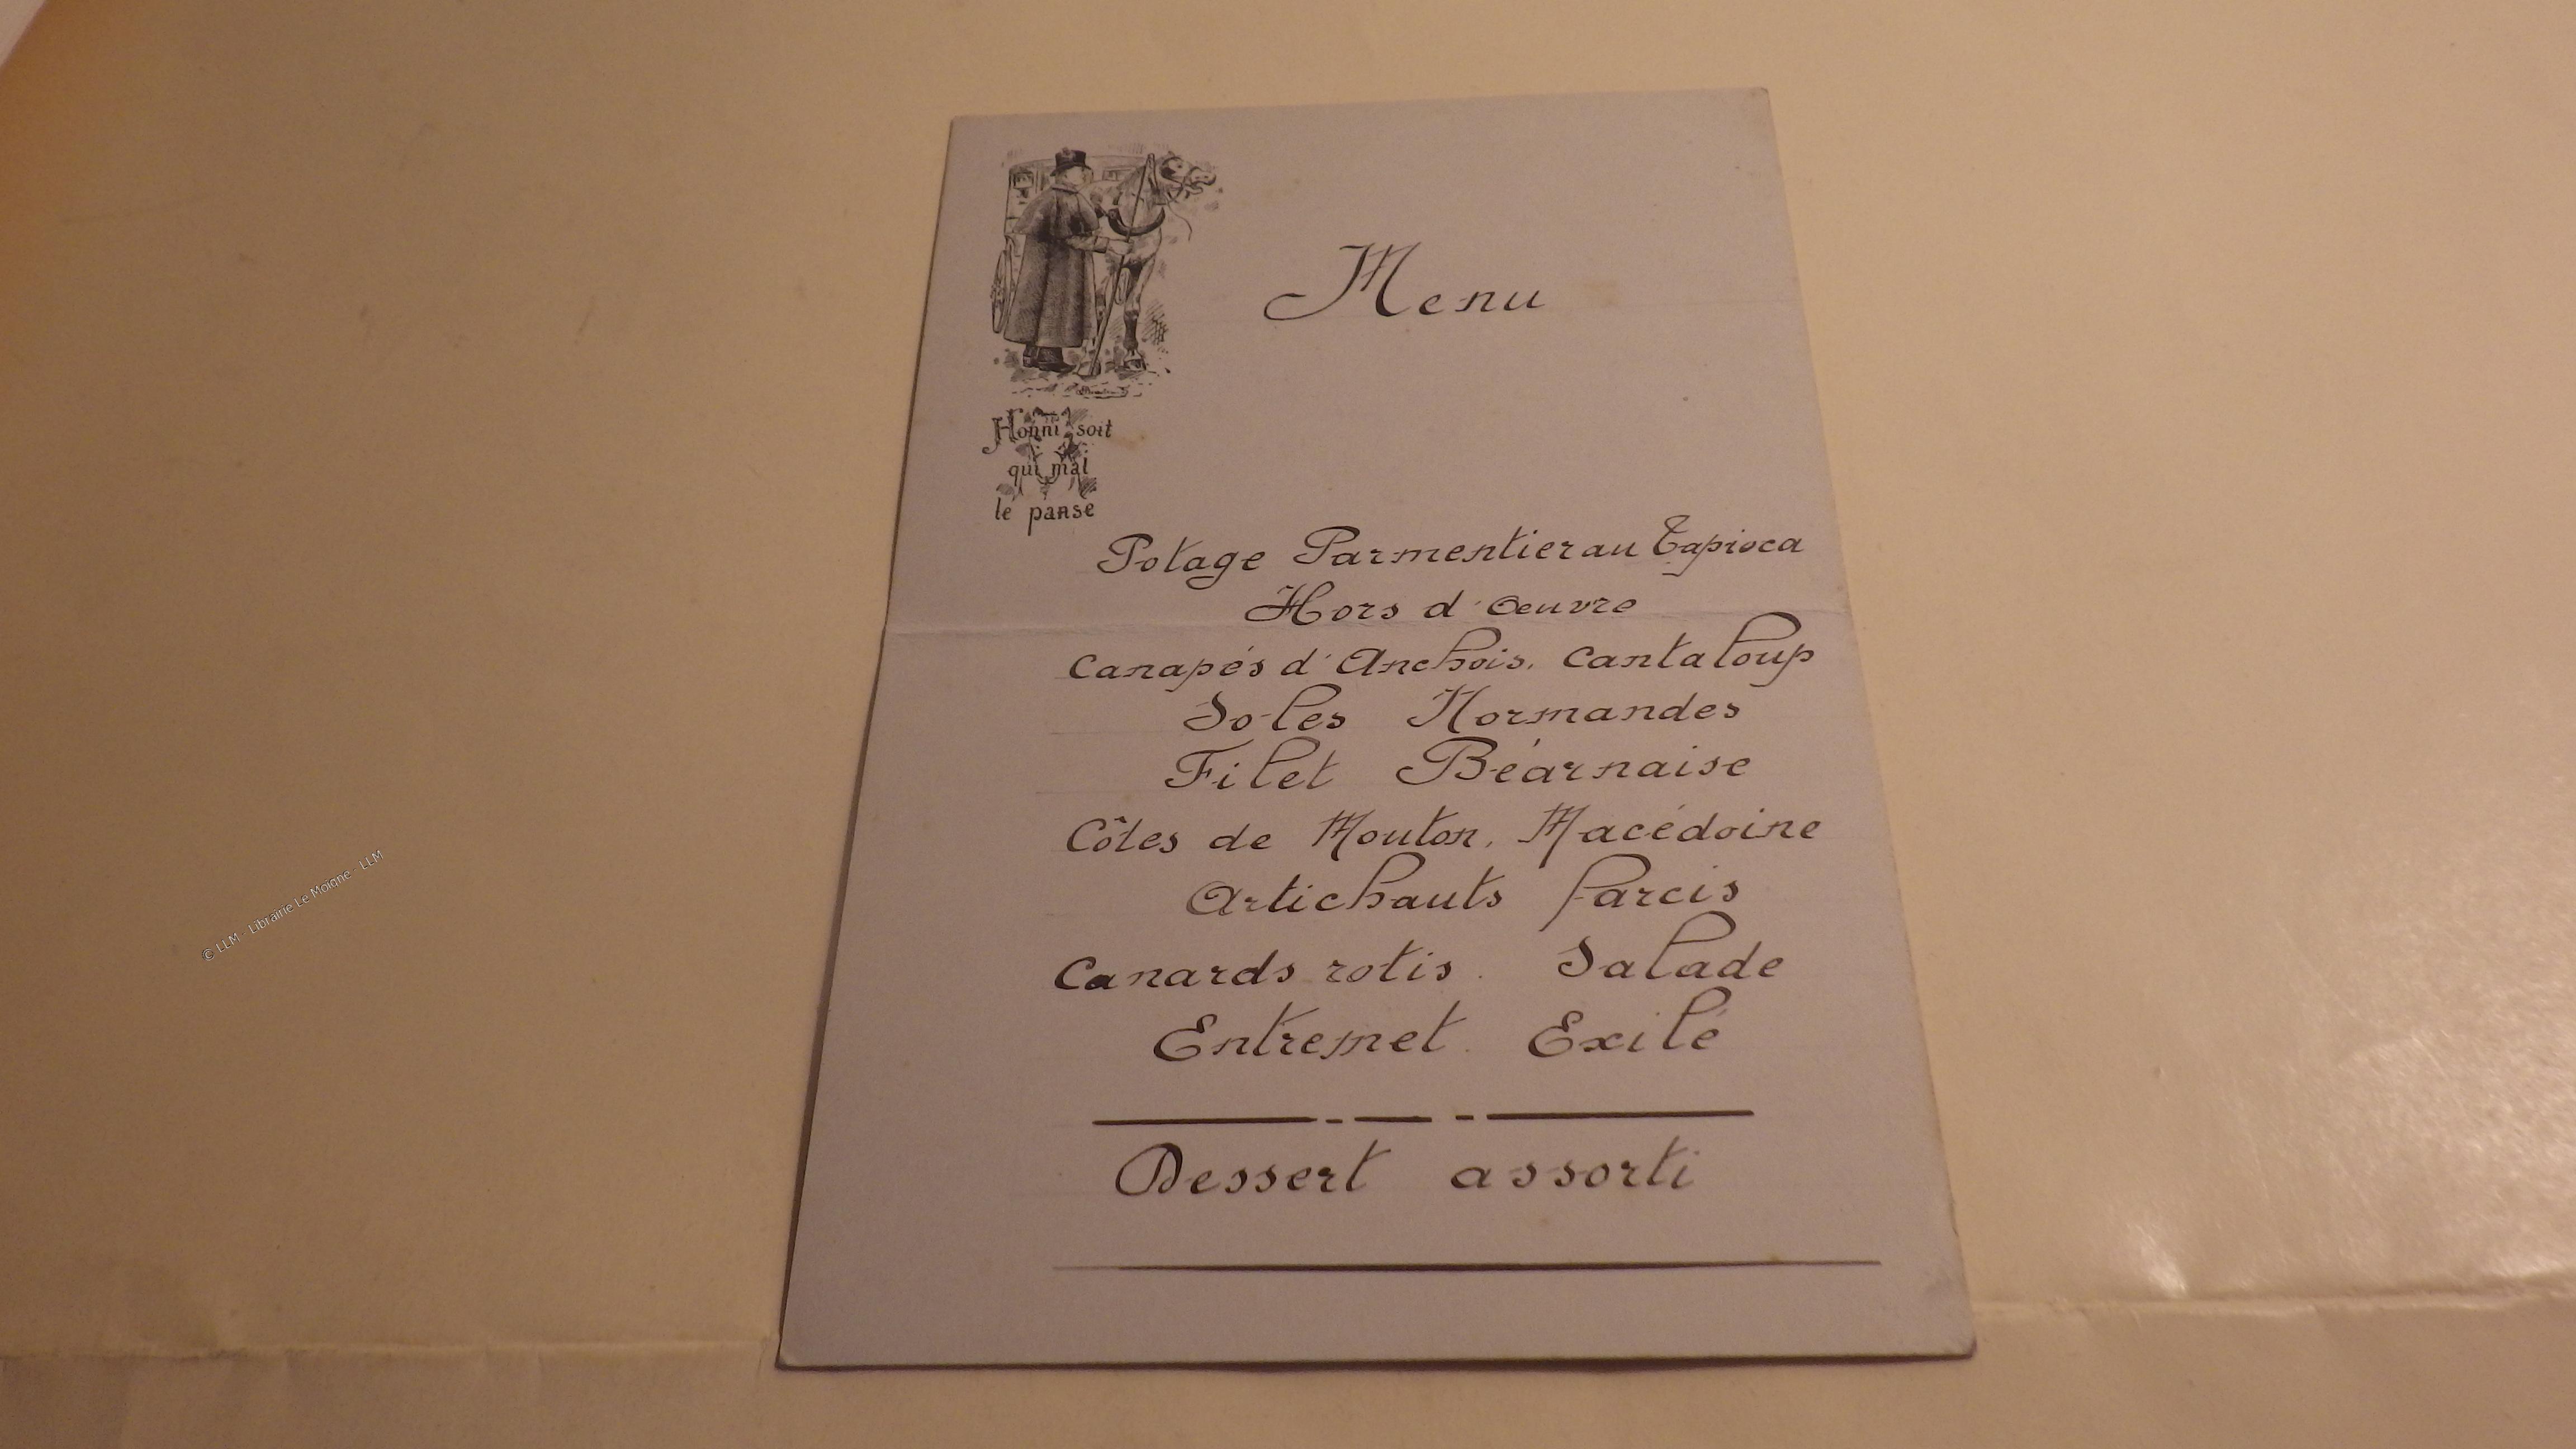 Menu
Honni soit
qui mal
le panse
Potage Parmentier au Tapioca
Hors d'Oeuvre
Canapés d'Anchois. Cantaloup
Soles Normandes
Filet Béarnaise
Côtes de Mouton. Macédoine
Artichauts farcis
Canards rotis. Salade
Entremet. Exilé
Dessert assorti
© LLM - Librairie Le Moigne - LLM